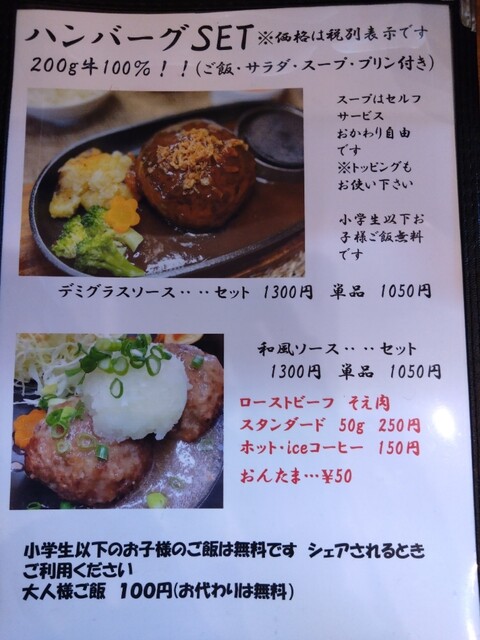 ハンバーグSET ※価格は税別表示です
200g牛100%！！(ご飯・サラダ・スープ・プリン付き)
スープはセルフ
サービス
おかわり自由
です
※トッピングも
お使い下さい
小学生以下お
子様ご飯無料
です
デミグラスソース‥‥セット 1300円 単品 1050円
和風ソース‥‥セット
1300円 単品 1050円
ローストビーフ そえ肉
スタンダード 50g 250円
ホット・iceコーヒー 150円
おんたま…¥50
小学生以下のお子様のご飯は無料です シェアされるとき
ご利用ください
大人様ご飯 100円(お代わりは無料)